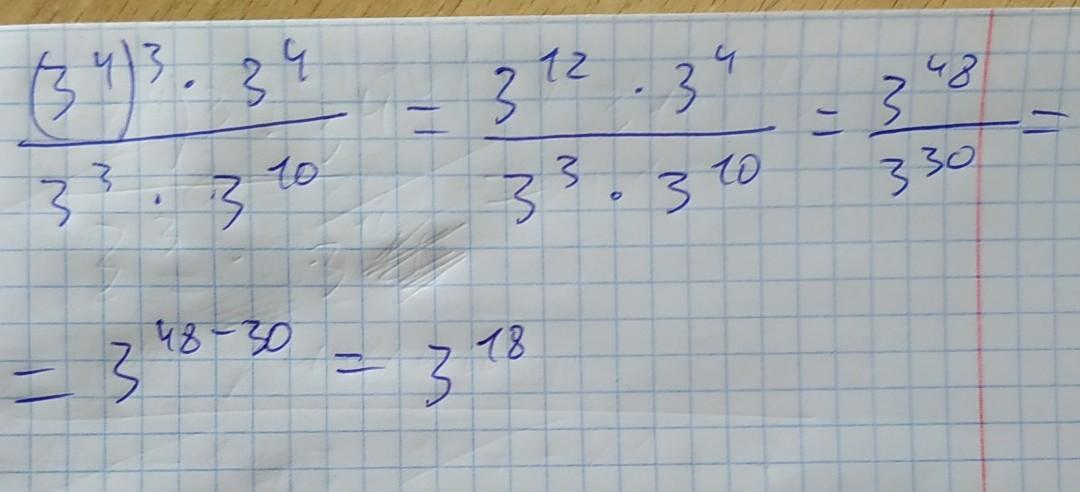 (3^4)^3 · 3^4 / 3^3 · 3^10 = 3^12 · 3^4 / 3^3 · 3^10 = 3^48 / 3^30 =
= 3^48-30 = 3^18